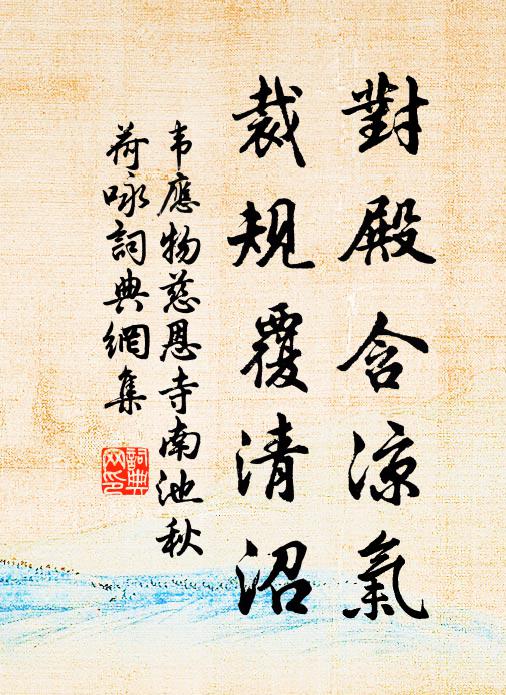 對殿含凉氣
裁規覆清沼
韦應物慈恩寺南池秋
荷咏詞典網集
詞典
网印